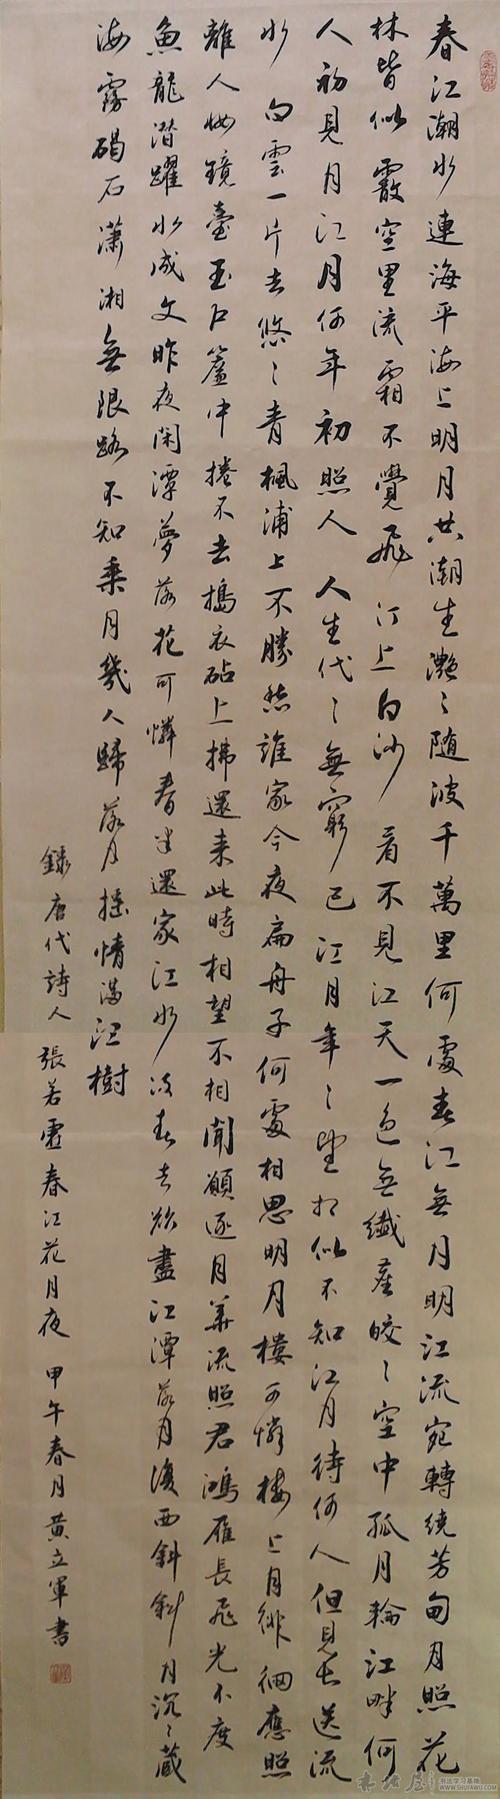 春江潮水連海平海上明月共潮生灔〻随波千萬里何處春江無月明江流宛轉繞芳甸月照花
林皆似霰空里流霜不覺飛汀上白沙看不見江天一色無纖塵皎〻空中孤月輪江畔何
人初見月江月何年初照人人生代〻無窮已江月年〻望相似不知江月待何人但見長送流
水白雲一片去悠〻青楓浦上不勝愁誰家今夜扁舟子何處相思明月樓可憐樓上月徘徊應照
離人妝鏡臺玉户簾中捲不去搗衣砧上拂還来此時相望不相聞願逐月華流照君鴻雁長飛光不度
魚龍潛躍水成文昨夜閑潭夢落花可憐春半還家江水流春去欲盡江潭落月復西斜斜月沉〻藏
海霧碣石瀟湘無限路不知乘月幾人歸落月摇情滿江樹
録唐代詩人張若虚春江花月夜甲午春月黄立軍書
书法学习基地
WWW.SHUFAWU.COM